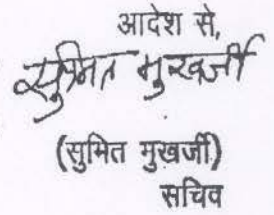 आदेश से,
सुमित मुखर्जी
(सुमित मुखर्जी)
सचिव